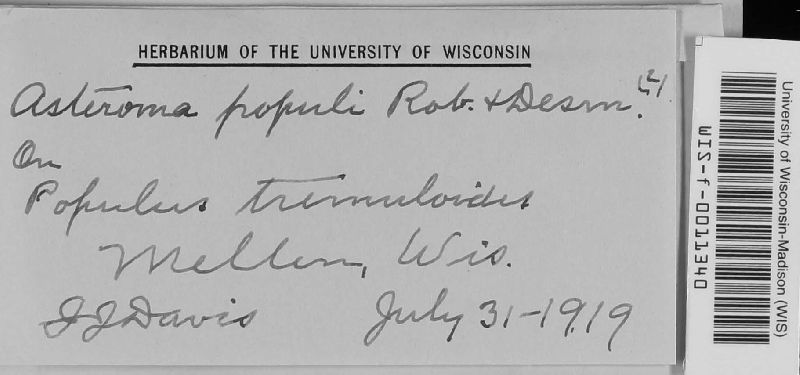 HERBARIUM OF THE UNIVERSITY OF WISCONSIN
Asteroma populi Rob. & Desm.
On
Populus tremuloides
Mellen, Wis.
JJDavis July 31-1919
University of Wisconsin-Madison (WIS)
WIS-f-0011340